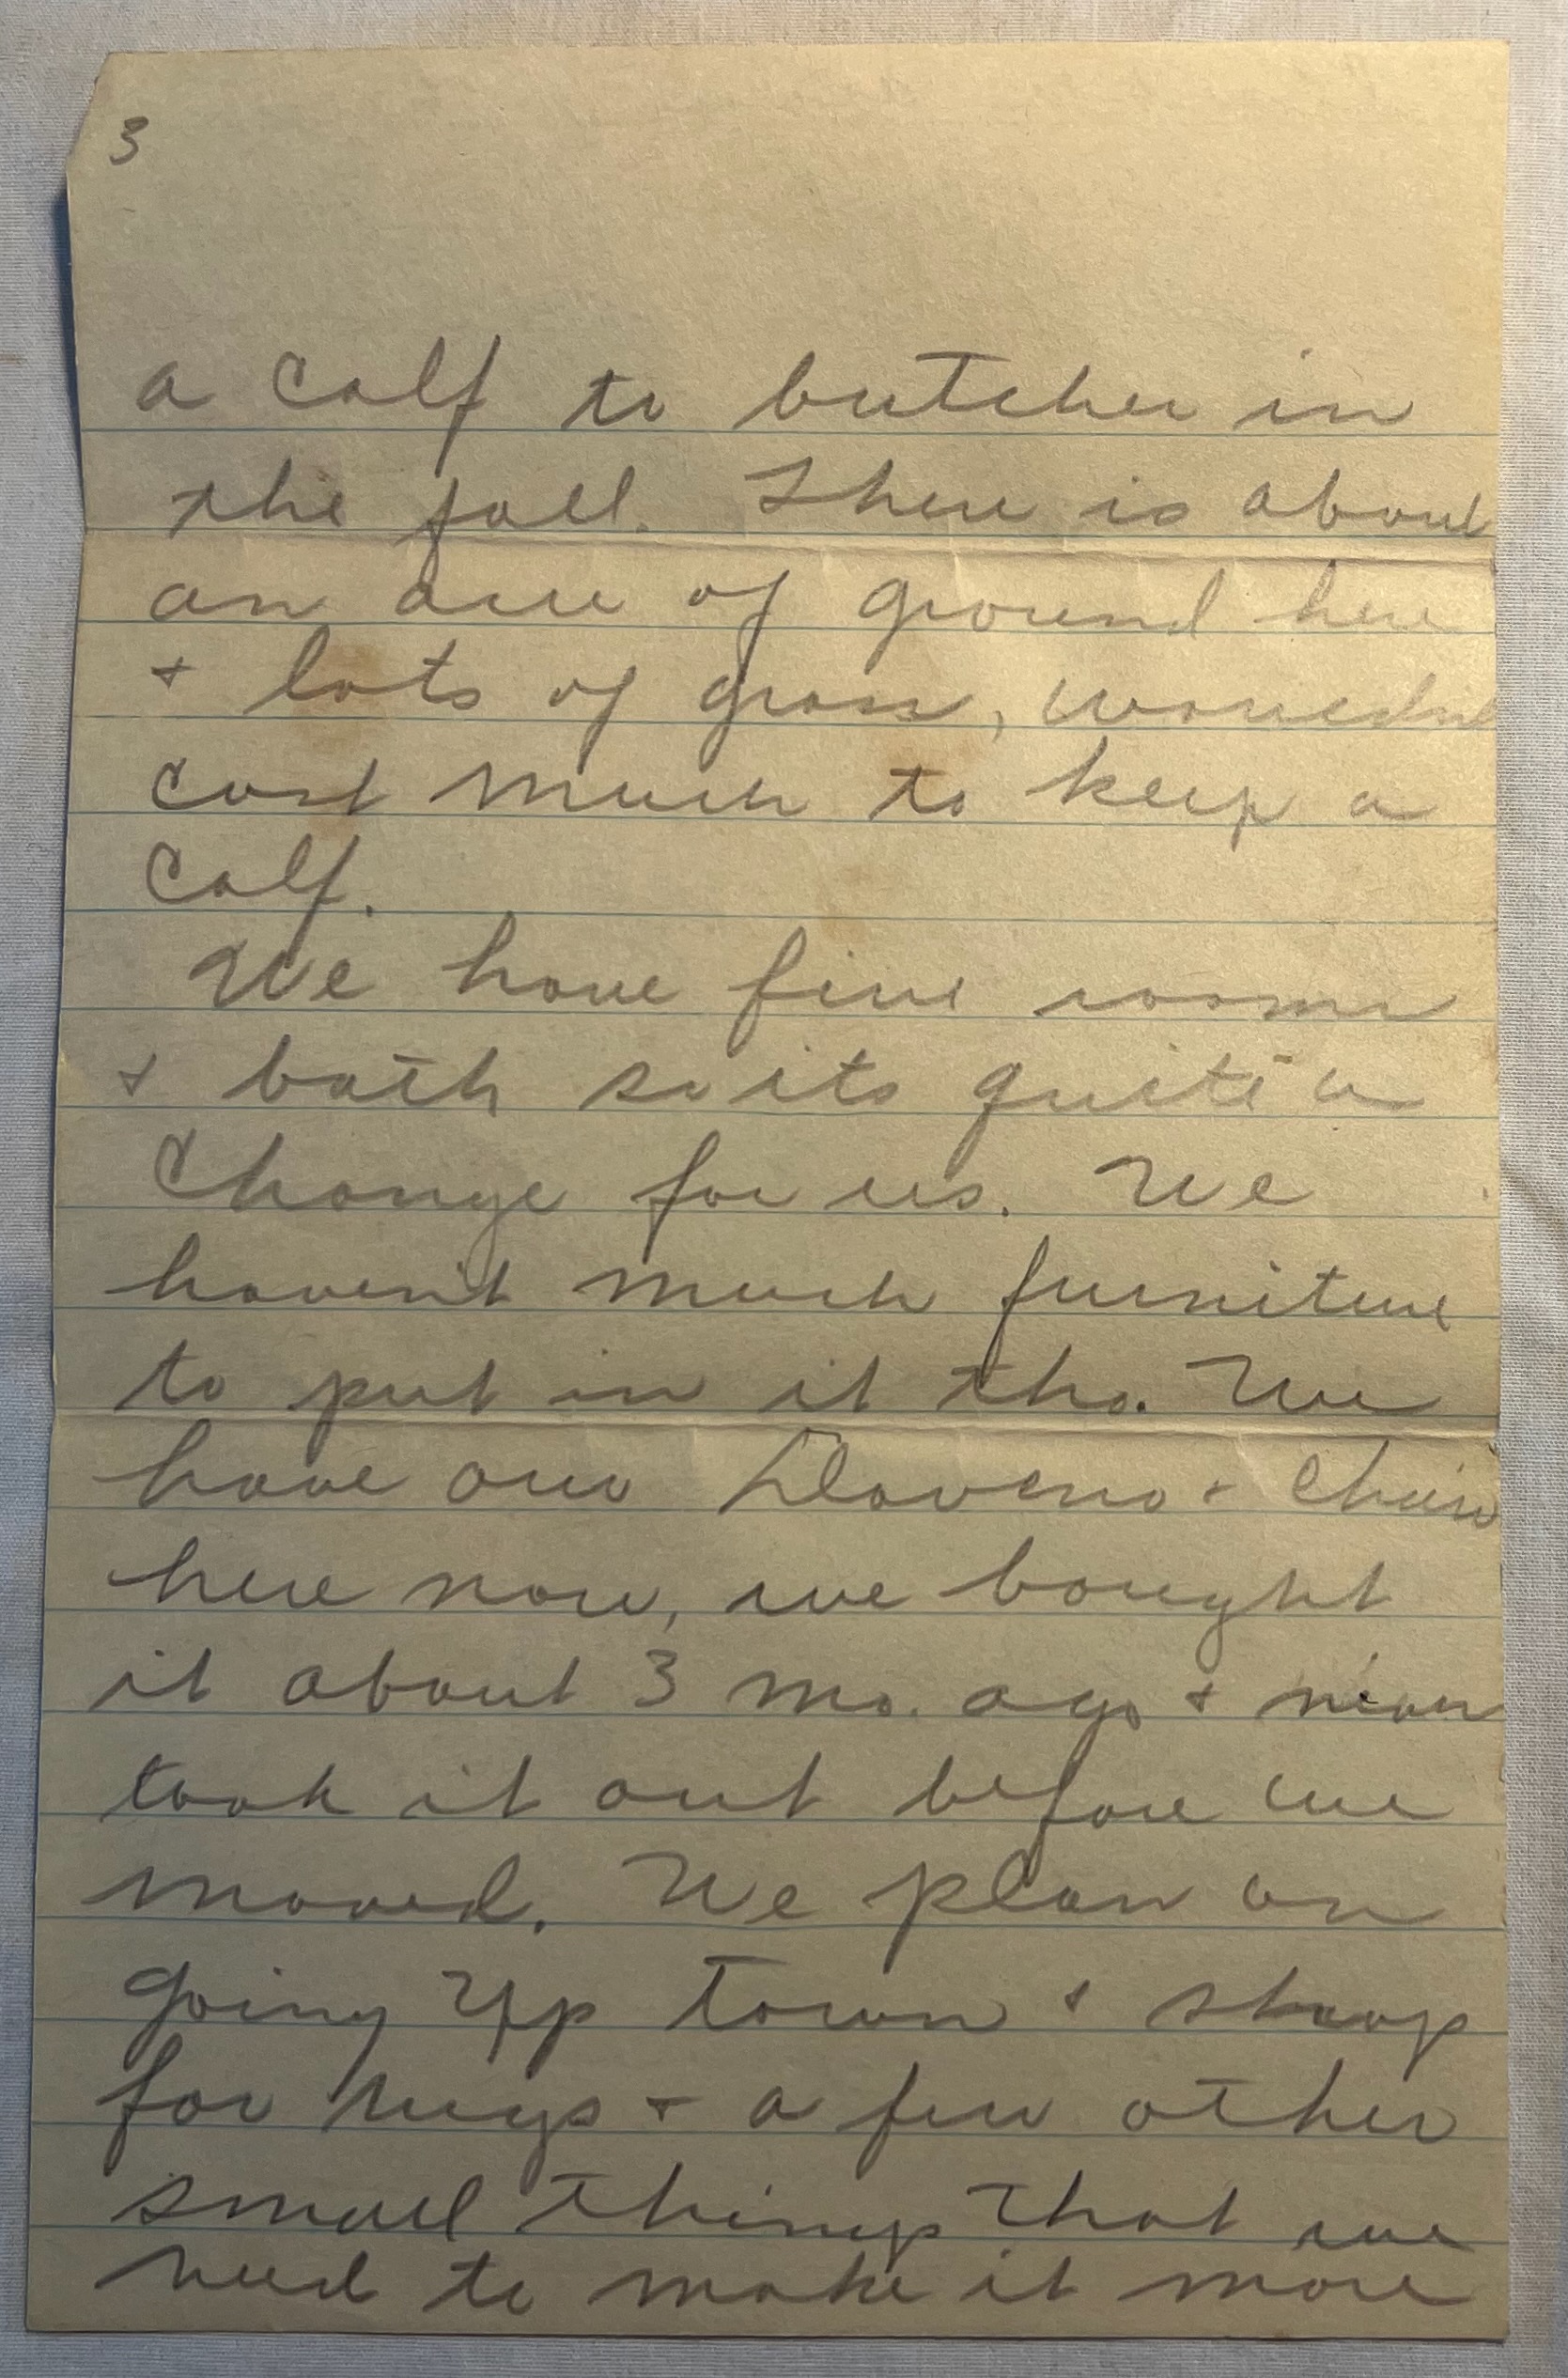 3
a calf to butcher in
the fall. There is about
an acre of ground here
+ lots of grass, wouldnt
cost much to keep a
calf.
We have five rooms
+ bath so its quite a
change for us. We
haven't much furniture
to put in it tho. We
have our Daveno + Chair
here now, we bought
it about 3 mo. ago + never
took it out before we
moved. We plan on
going up town + shop
for rugs + a few other
small things that we
need to make it more